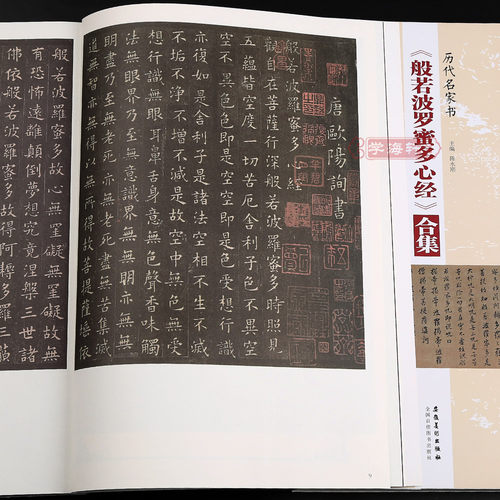 历代名家书
《般若波罗蜜多心经》
合集
安徽美术出版社
学海轩
唐歐陽詢書
般若波羅蜜多心經
觀自在菩薩行深般若波羅蜜多時照見
五蘊皆空度一切苦厄舍利子色不異空
空不異色色即是空空即是色受想行識
亦復如是舍利子是諸法空相不生不滅
不垢不淨不增不減是故空中無色無受
想行識無眼耳鼻舌身意無色聲香味觸
法無眼界乃至無意識界無無明亦無無
明盡乃至無老死亦無老死盡無苦集滅
道無智亦無得以無所得故菩提薩埵依
般若波羅蜜多故心無罣礙無罣礙故無
有恐怖遠離顛倒夢想究竟涅槃三世諸
佛依般若波羅蜜多故得阿耨多羅三藐